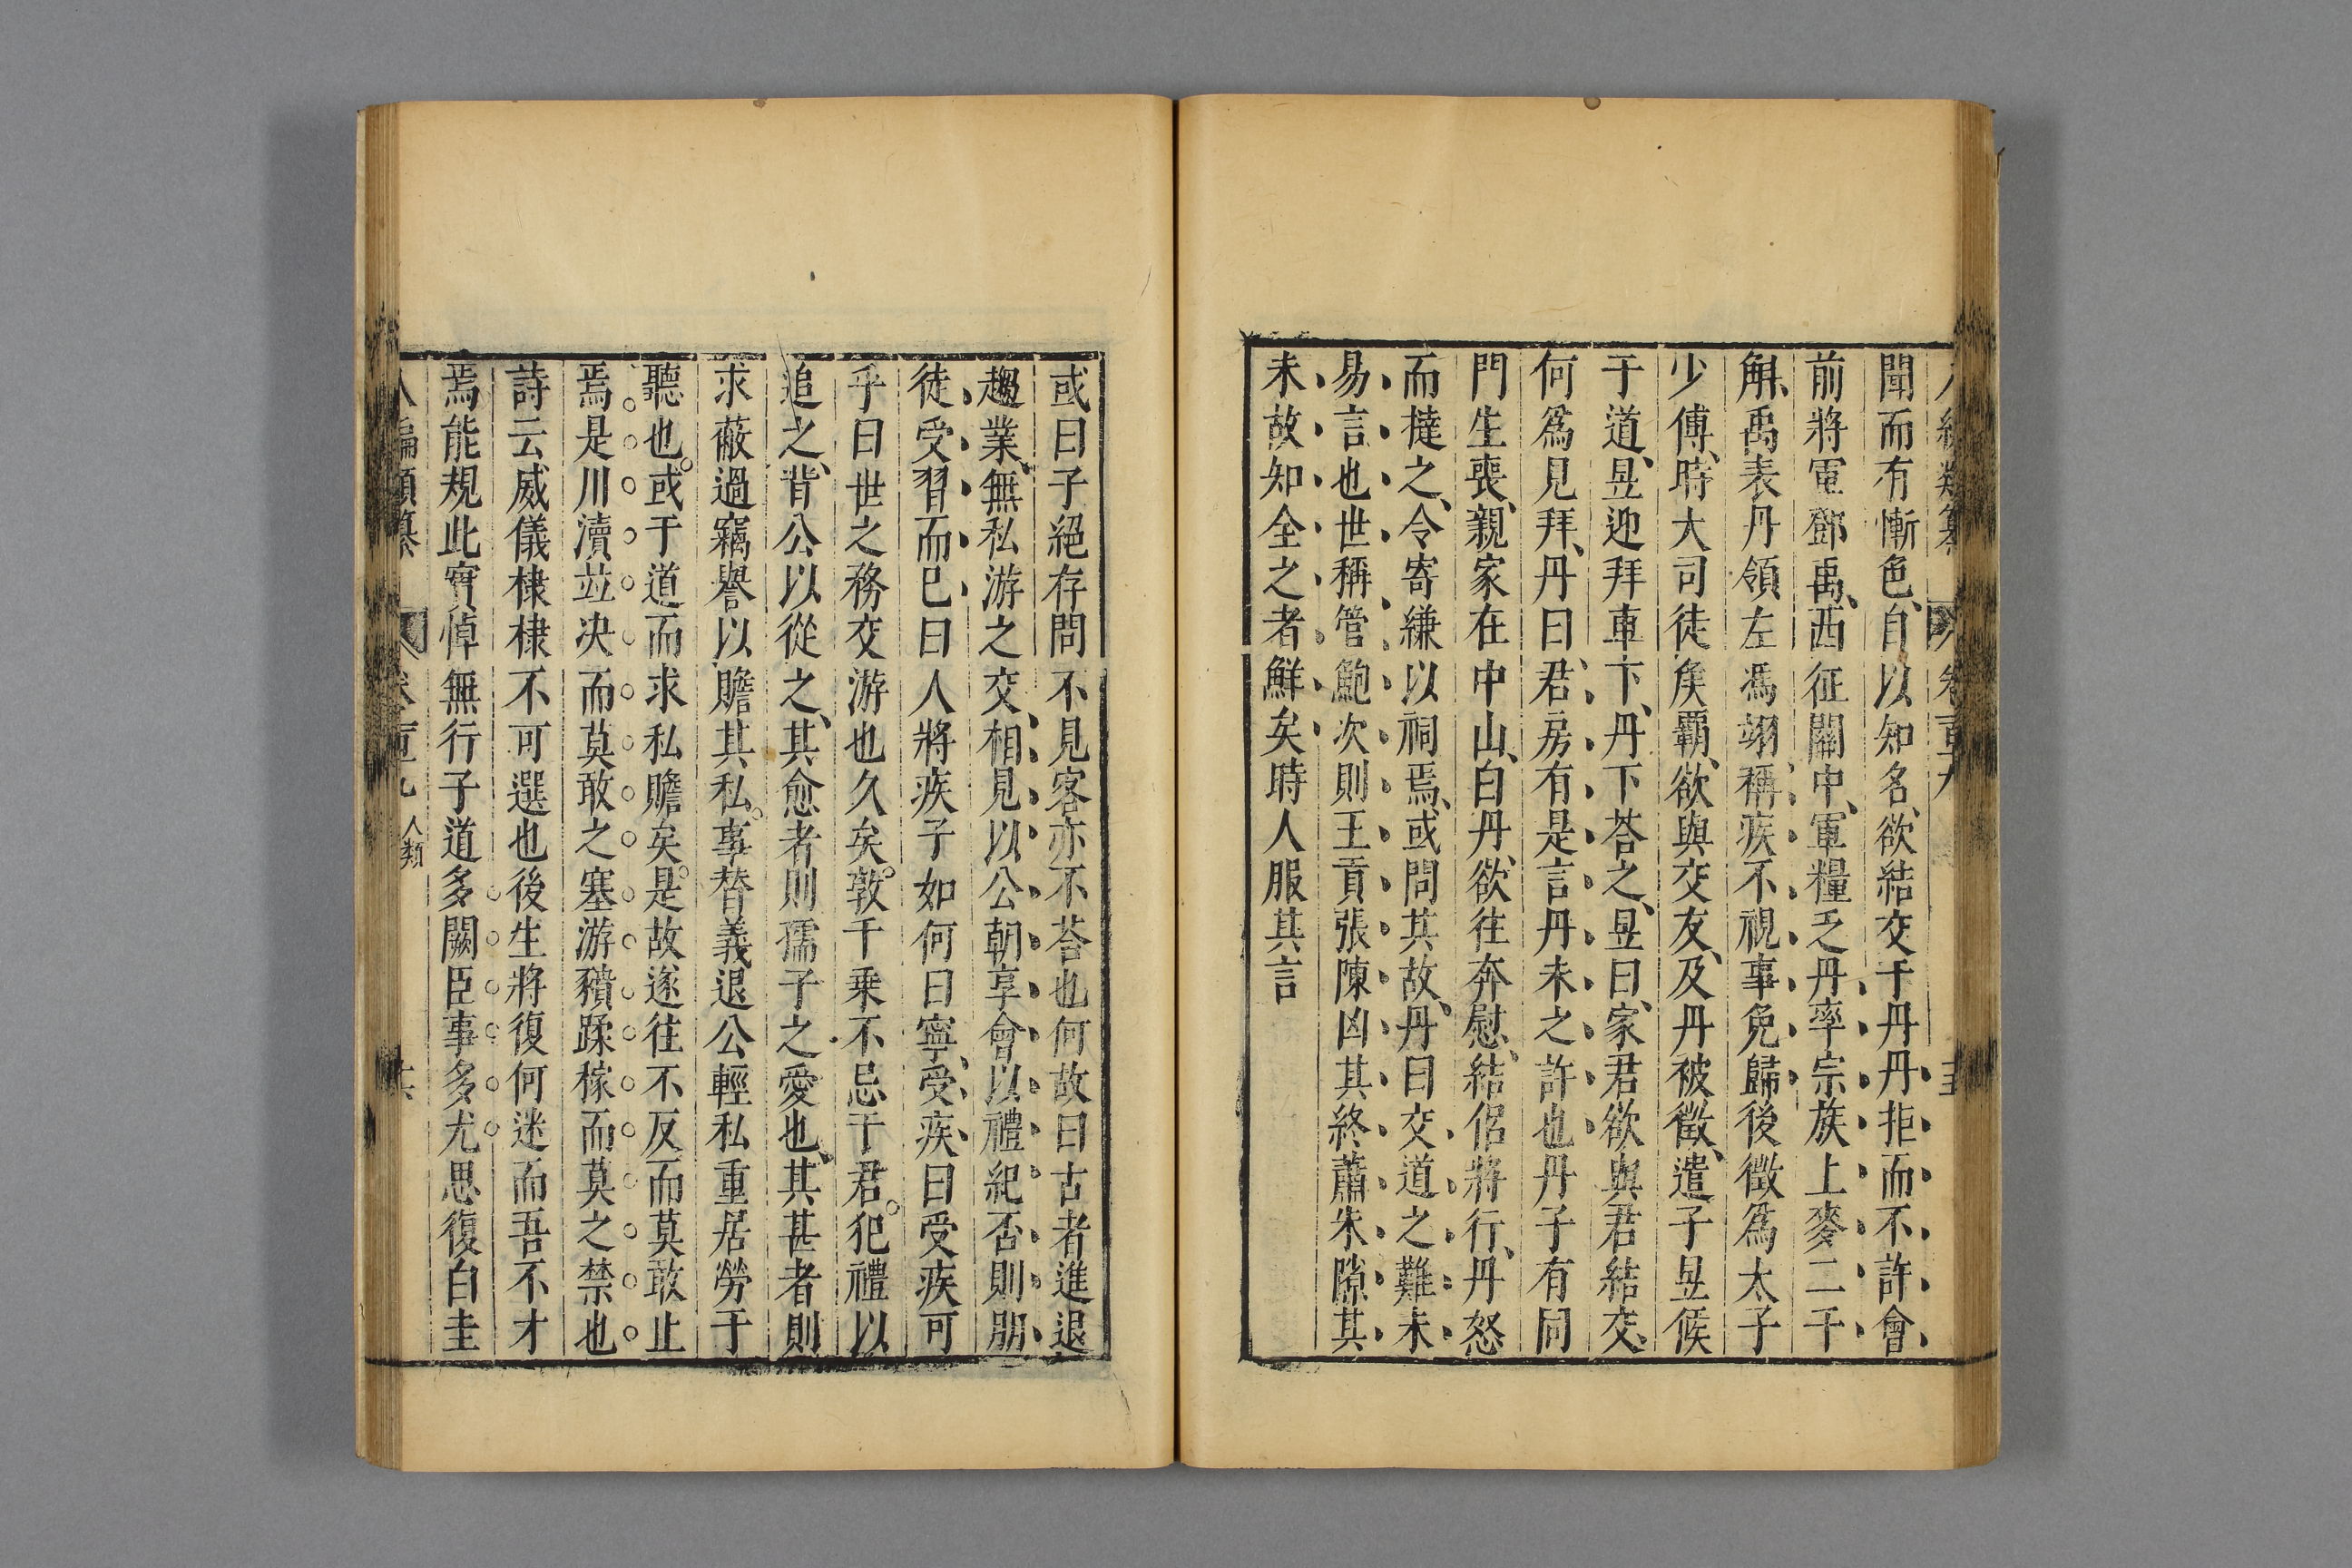 聞而有慚色自以知名欲結交于丹丹拒而不許會
前將軍鄧禹西征關中軍糧乏丹率宗族上麥二千
斛禹表丹領左馮翊稱疾不視事免歸後徵爲太子
少傅時大司徒矦覇欲與交友及丹被徵遣子昱候
于道昱迎拜車下丹下荅之昱曰家君欲與君結交
何爲見拜丹曰君房有是言丹未之許也丹子有同
門生喪親家在中山白丹欲往奔慰結侶將行丹怒
而撻之令寄縑以祠焉或問其故丹曰交道之難未
易言也世稱管鮑次則王貢張陳凶其終蕭朱隙其
末故知全之者鮮矣時人服其言
或曰子絕存問不見客亦不荅也何故曰古者進退
趨業無私游之交相見以公朝享會以禮紀否則朋
徒受習而已曰人將疾子如何曰寧受疾曰受疾可
乎曰世之務交游也久矣敦千乗不忌于君犯禮以
追之背公以從之其愈者則孺子之愛也其甚者則
求蔽過竊譽以贍其私事替義退公輕私重居勞于
聽也或于道而求私贍矣是故遂往不反而莫敢止
焉是川瀆竝决而莫敢之塞游豶蹂稼而莫之禁也
詩云威儀棣棣不可選也後生將復何迷而吾不才
焉能規此實悼無行子道多闕臣事多尤思復白圭
人類